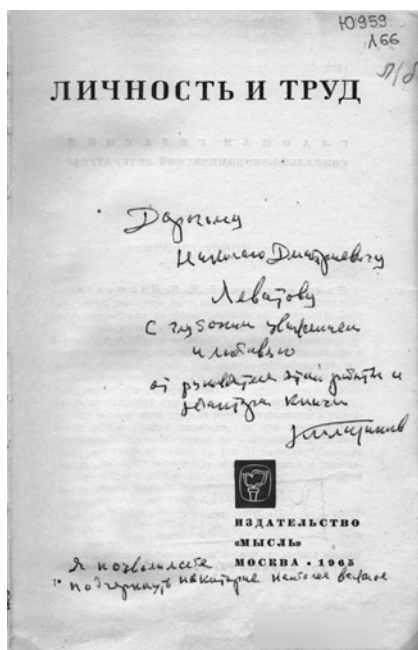 Ю959
Л66
П/б
ЛИЧНОСТЬ И ТРУД
Дорогому
Николаю Дмитриевичу
Левитову
с глубоким уважением
и любовью
от руководителя этой работы и
редактора книги
КПлатонов
ИЗДАТЕЛЬСТВО
«МЫСЛЬ»
МОСКВА · 1965
Я позволил себе
подчеркнуть некоторые наиболее